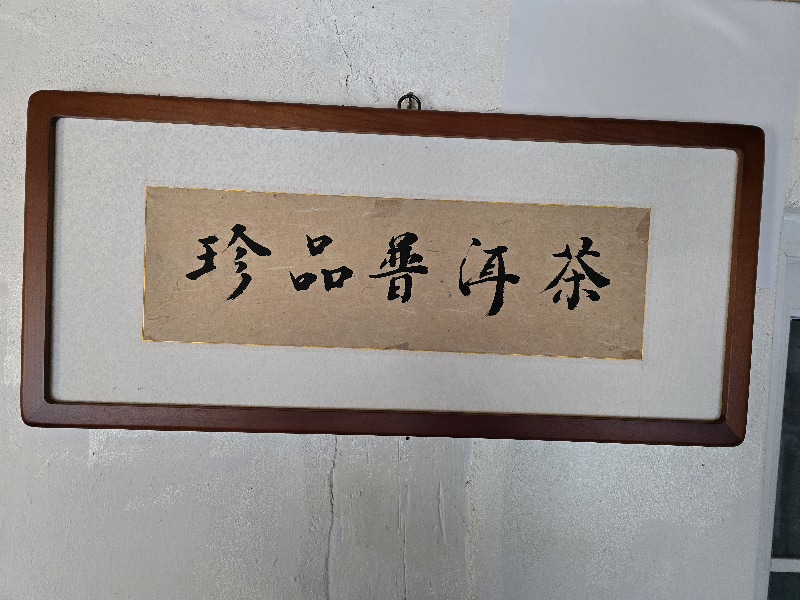 珍品普洱茶